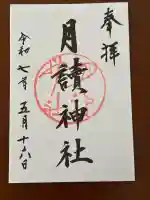 奉拝
月讀神社
令和七年五月十六日